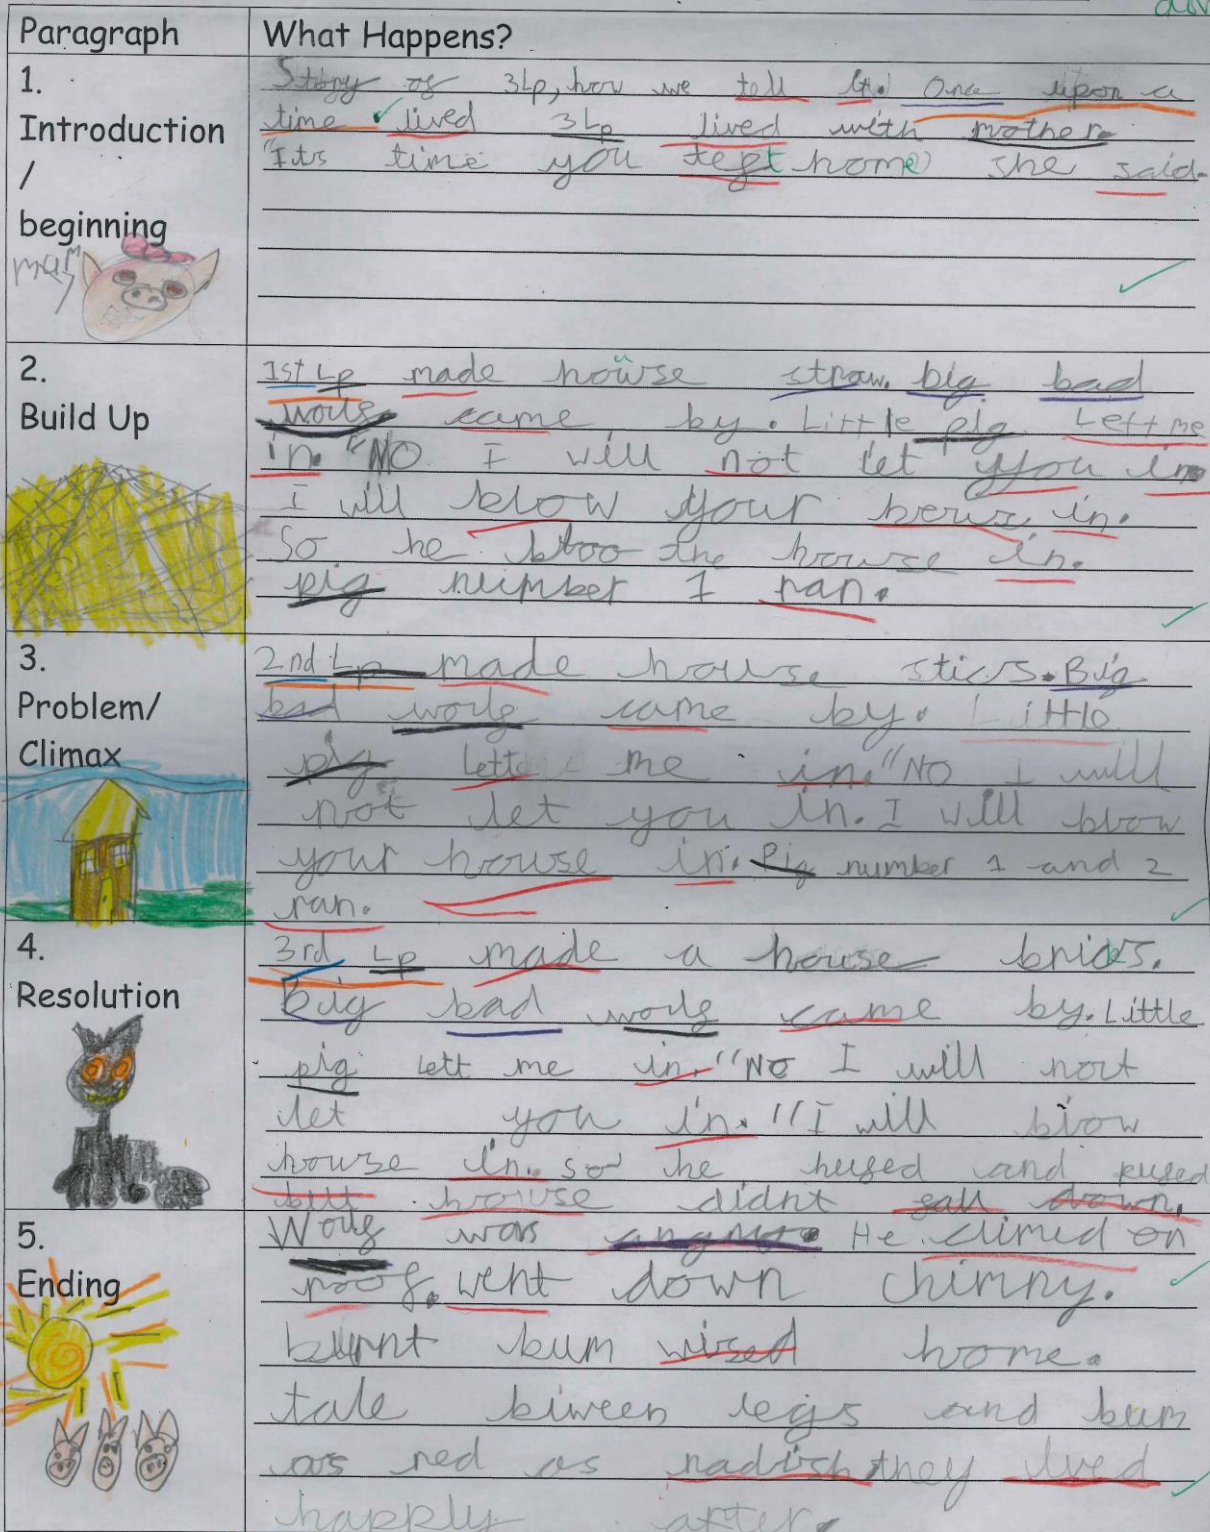 Paragraph
What Happens?
1.
Introduction
/
beginning
mum
Story of 3Lp, how we tell it. Once upon a
time lived 3Lp lived with mother.
"Its time you left home" she said.
2.
Build Up
1st Lp made house straw. big bad
wolf came by. Little pig Lett me
in. "NO I will not let yyou in.
I will blow your in.
So he bloo the house in.
pig number 1 ran.
3.
Problem/
Climax
2nd Lp made house stics. Big
bad wolf came by. Little
pig Lett me in. "NO I will
not let you in. I will blow
your house in. Pig number 1 and 2
ran.
4.
Resolution
3rd Lp made a house bricks.
Big bad wolf came by. Little
pig Lett me in. "No I will not
let you in. "I will blow
house in. so he hufed and pufed
but house didnt fall down.
5.
Ending
Wolf was angry. He climed on
roof. went down chimny.
burnt bum wised home.
tale biween legs and bum
as red as radish they lived
happly after.